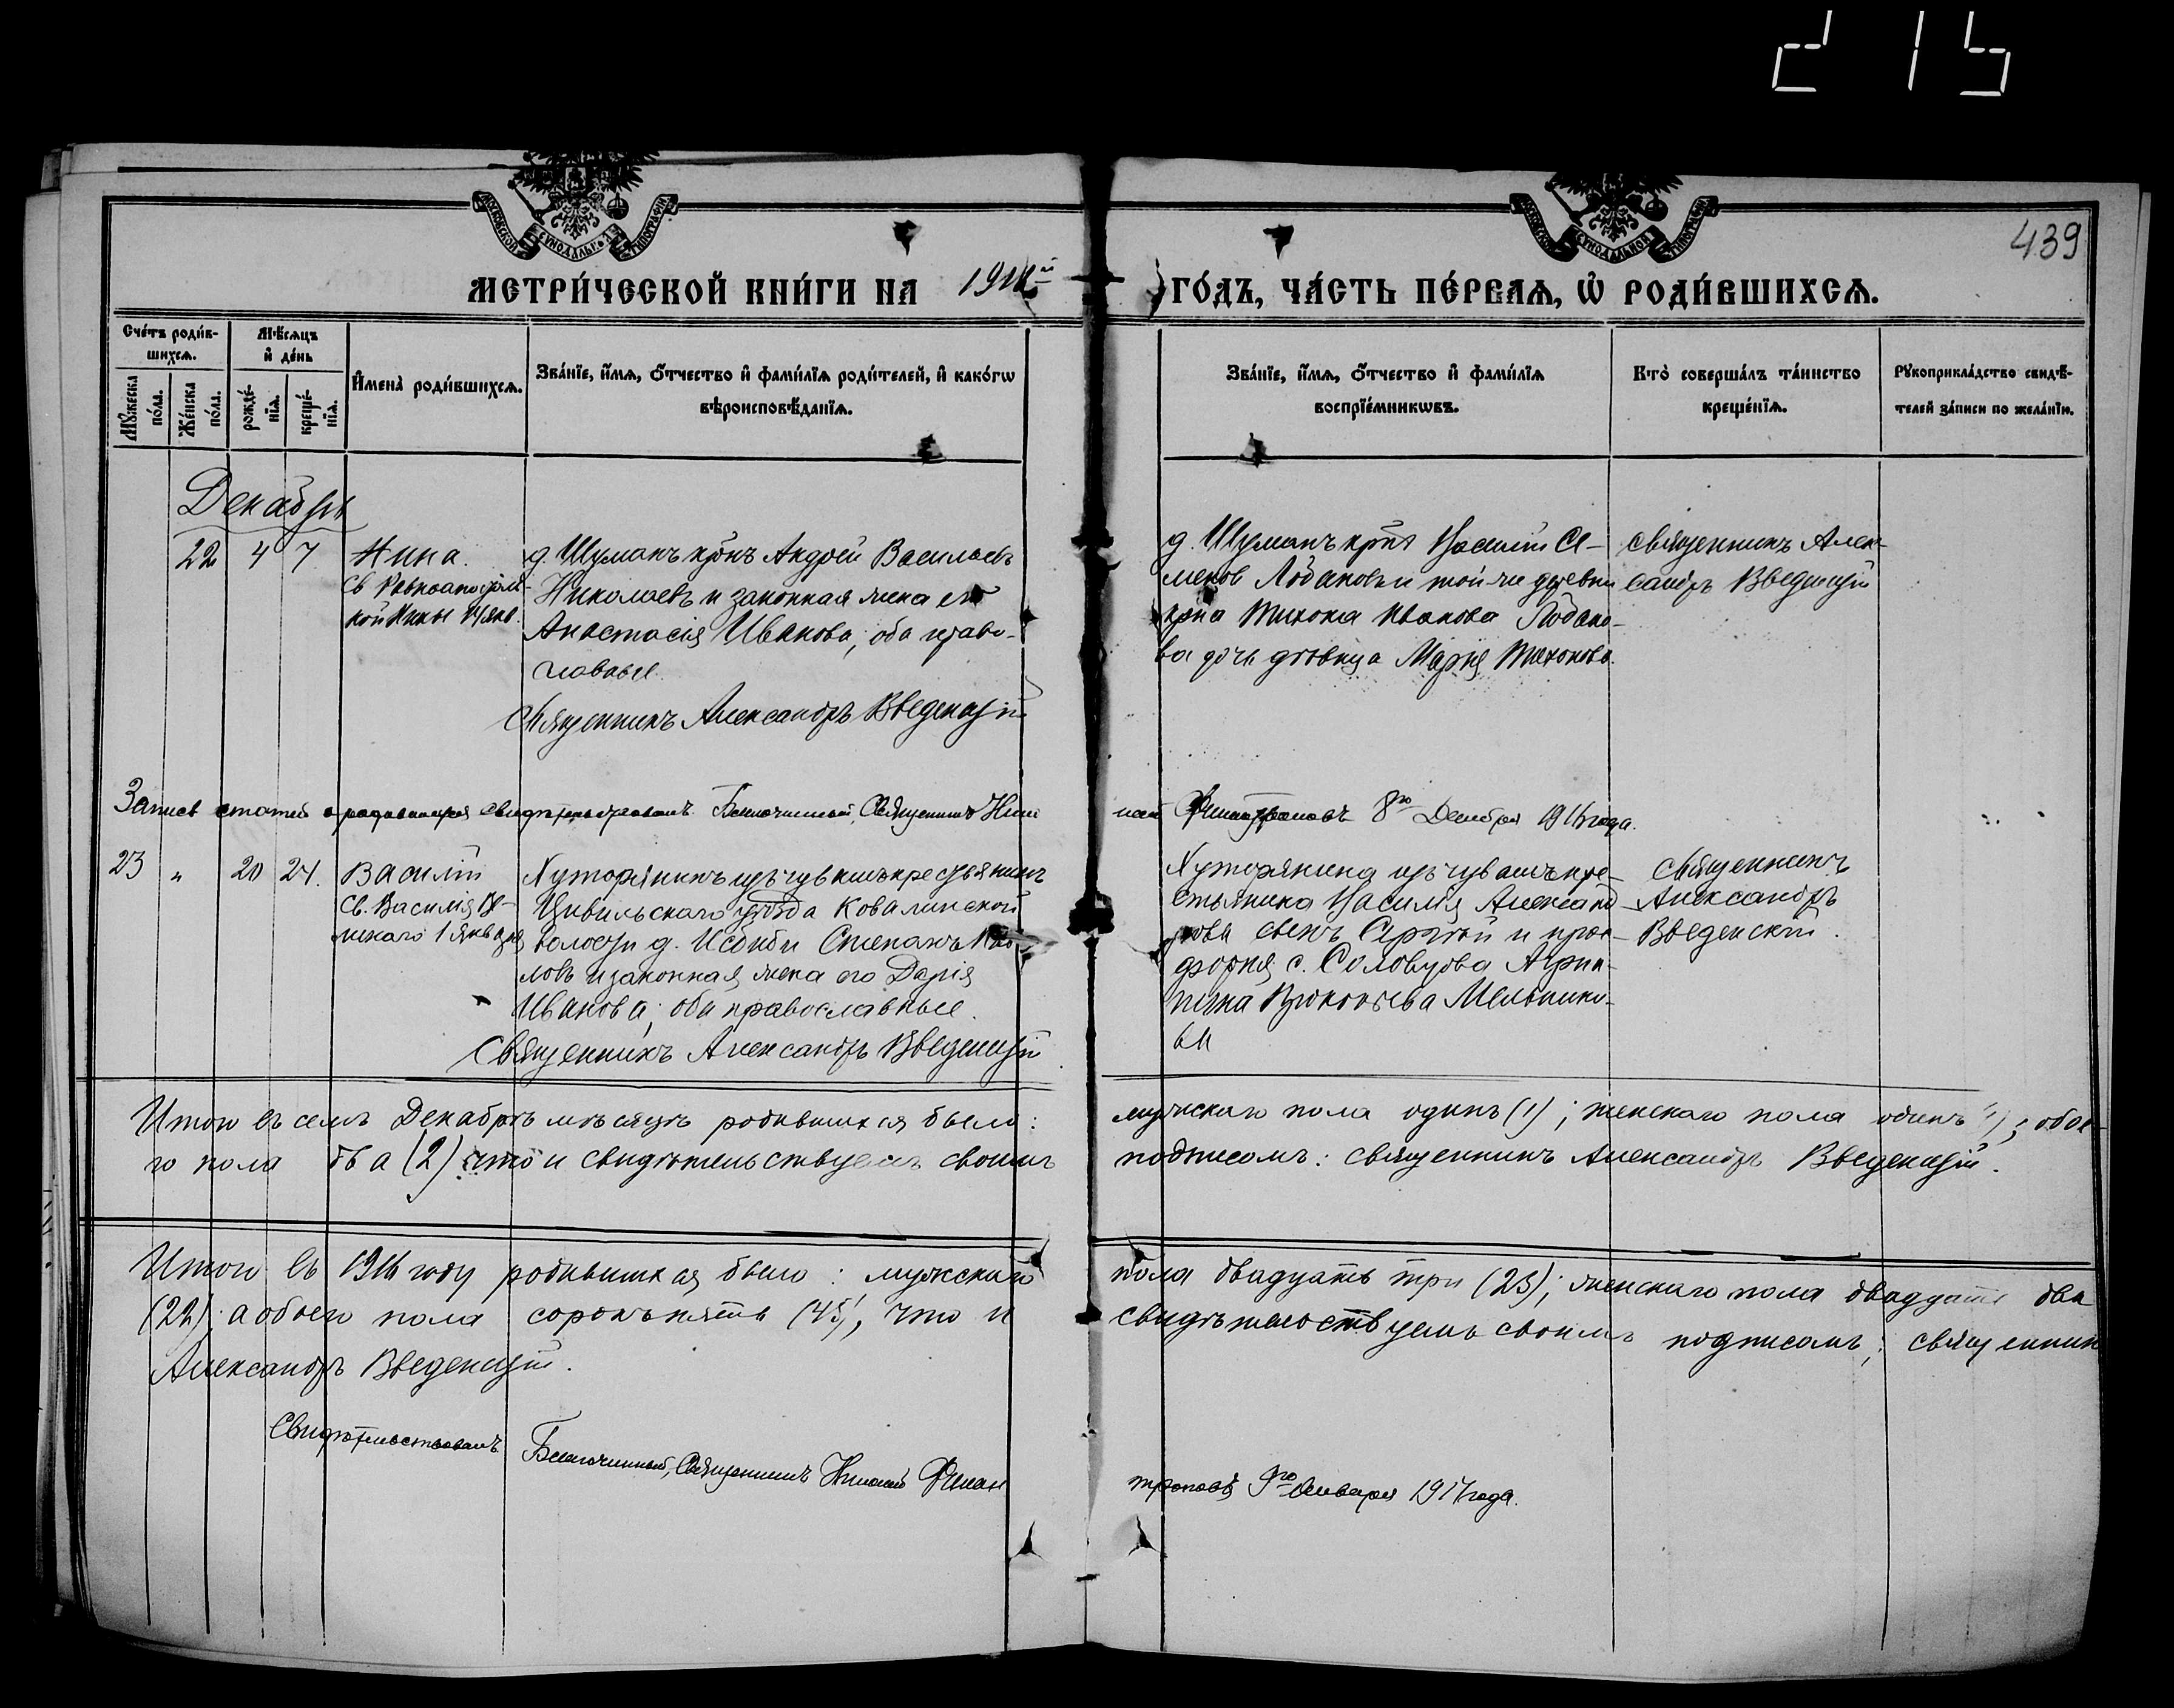 215
439
МОСКОВСКОЙ СѴНОДАЛЬНОЙ ТИПОГРАФІИ
МОСКОВСКОЙ СѴНОДАЛЬНОЙ ТИПОГРАФІИ
МЕТРИ́ЧЕСКОЙ КНИ́ГИ НА 1916й ГО́ДЪ, ЧА́СТЬ ПЕ́РВАѦ, Ѡ҆ РОДИ́ВШИХСѦ.
Сче́тъ роди́в-
шихсѧ.
Мꙋ́жеска по́ла.
Же́нска по́ла.
Мѣ́сѧцъ
и҆ де́нь
рожде́-
нїѧ.
креще́-
нїѧ.
И҆мена̀ роди́вшихсѧ.
Зва́нїе, и҆́мѧ, ѻ҆́тчество и҆ фами́лїѧ роди́телей, и҆ како́гѡ
вѣроисповѣ́данїѧ.
Зва́нїе, и҆́мѧ, ѻ҆́тчество и҆ фами́лїѧ
воспрїе́мникѡвъ.
Кто̀ соверша́лъ та́инство
креще́нїѧ.
Рꙋкоприкла́дство свидѣ́-
телей за́писи по жела́нїю.
Декабрь
22 4 7
Нина.
Св Равноапостоль-
ной Нины 14 янв.
д. Шуманъ крнъ Андрей Васильевъ
Николаевъ и законная жена его
Анастасія Иванова, оба право-
славные.
Священникъ Александръ Введенскій
д. Шуманъ Василій Се-
меновъ и той же деревни
крна Тихона Иванова
ва дочь дѣвица Марія Тихонова.
Священникъ Алек-
сандръ Введенскій
Запись статей о родившихся свидѣтельствовалъ Благочинный, Священникъ Нико
лай 8го Декабря 1916 года.
23 " 20 24.
Василій
Св. Василія Ве-
ликаго 1 января
Хуторянинъ изъ чувашъ крестьянинъ
Цивильскаго уѣзда Ковалинской
волости д. Степанъ
ловъ и законная жена его Дарія
Иванова; оба православные.
Священникъ Александръ Введенскій
Хуторянина изъ чувашъ кре-
стьянина Василія Александ-
рова сынъ Сергѣй и
с. Соловцова Агрип-
пина Прокопьева Мельнико-
ва
Священникъ
Александръ
Введенскій.
Итого въ семъ Декабрѣ мѣсяцѣ родившихся было: мужскаго пола одинъ (1); женскаго пола одинъ (1); обое-
го пола два (2) что и свидѣтельствуемъ своимъ подписомъ: священникъ Александръ Введенскій.
Итого въ 1916 году родившихся было: мужскаго пола двадцать три (23); женскаго пола двадцать два
(22); а обоего пола сорокъ пять (45), что и свидѣтельствуемъ своимъ подписомъ; священникъ
Александръ Введенскій.
Свидѣтельствовалъ Благочинный, Священникъ Николай
9го Января 1917 года.